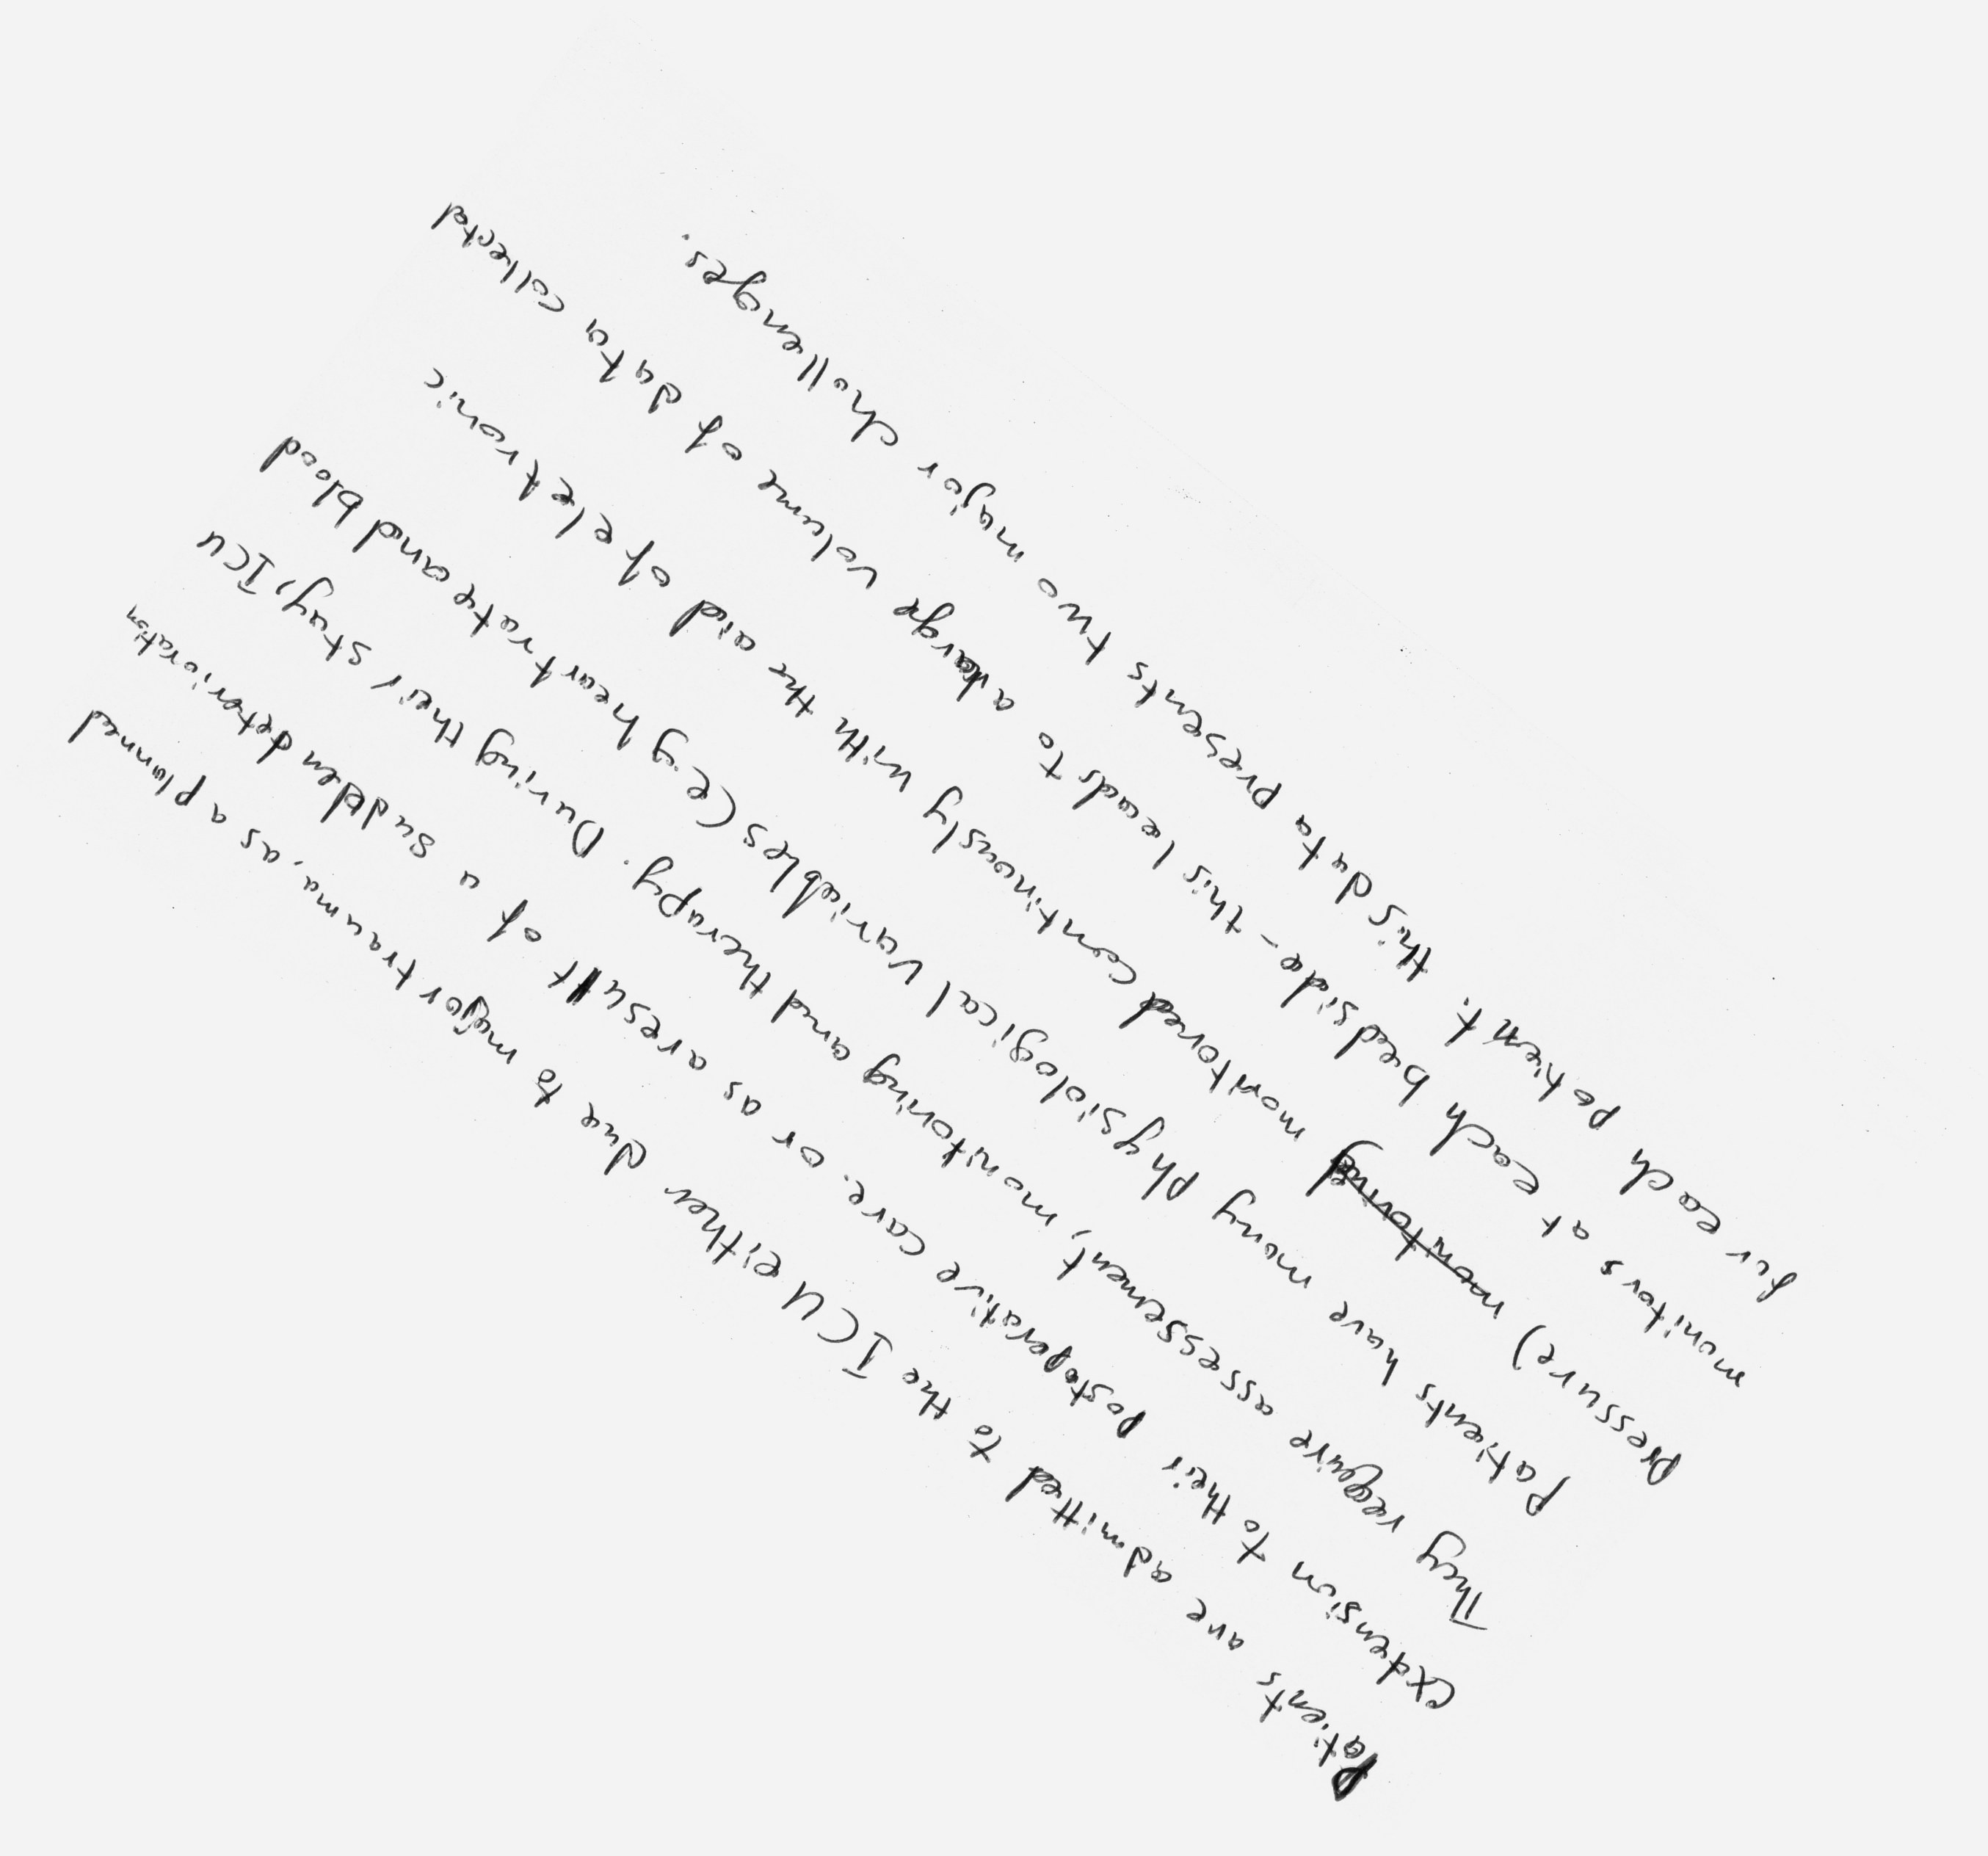 Patients are admitted to the ICU either due to major trauma, as a planned
extension to their postoperative care. or as a result of a sudden deterioration
They require assessement, monitoring and therapy. During their stay, ICU
patients have many phygsiological variables (eg heart rate and blood
pressure) monitored continously with the aid of eletronic
monitors at each bedside - this leads to a large volume of data collected
for each patient. this data presents two major challenges.